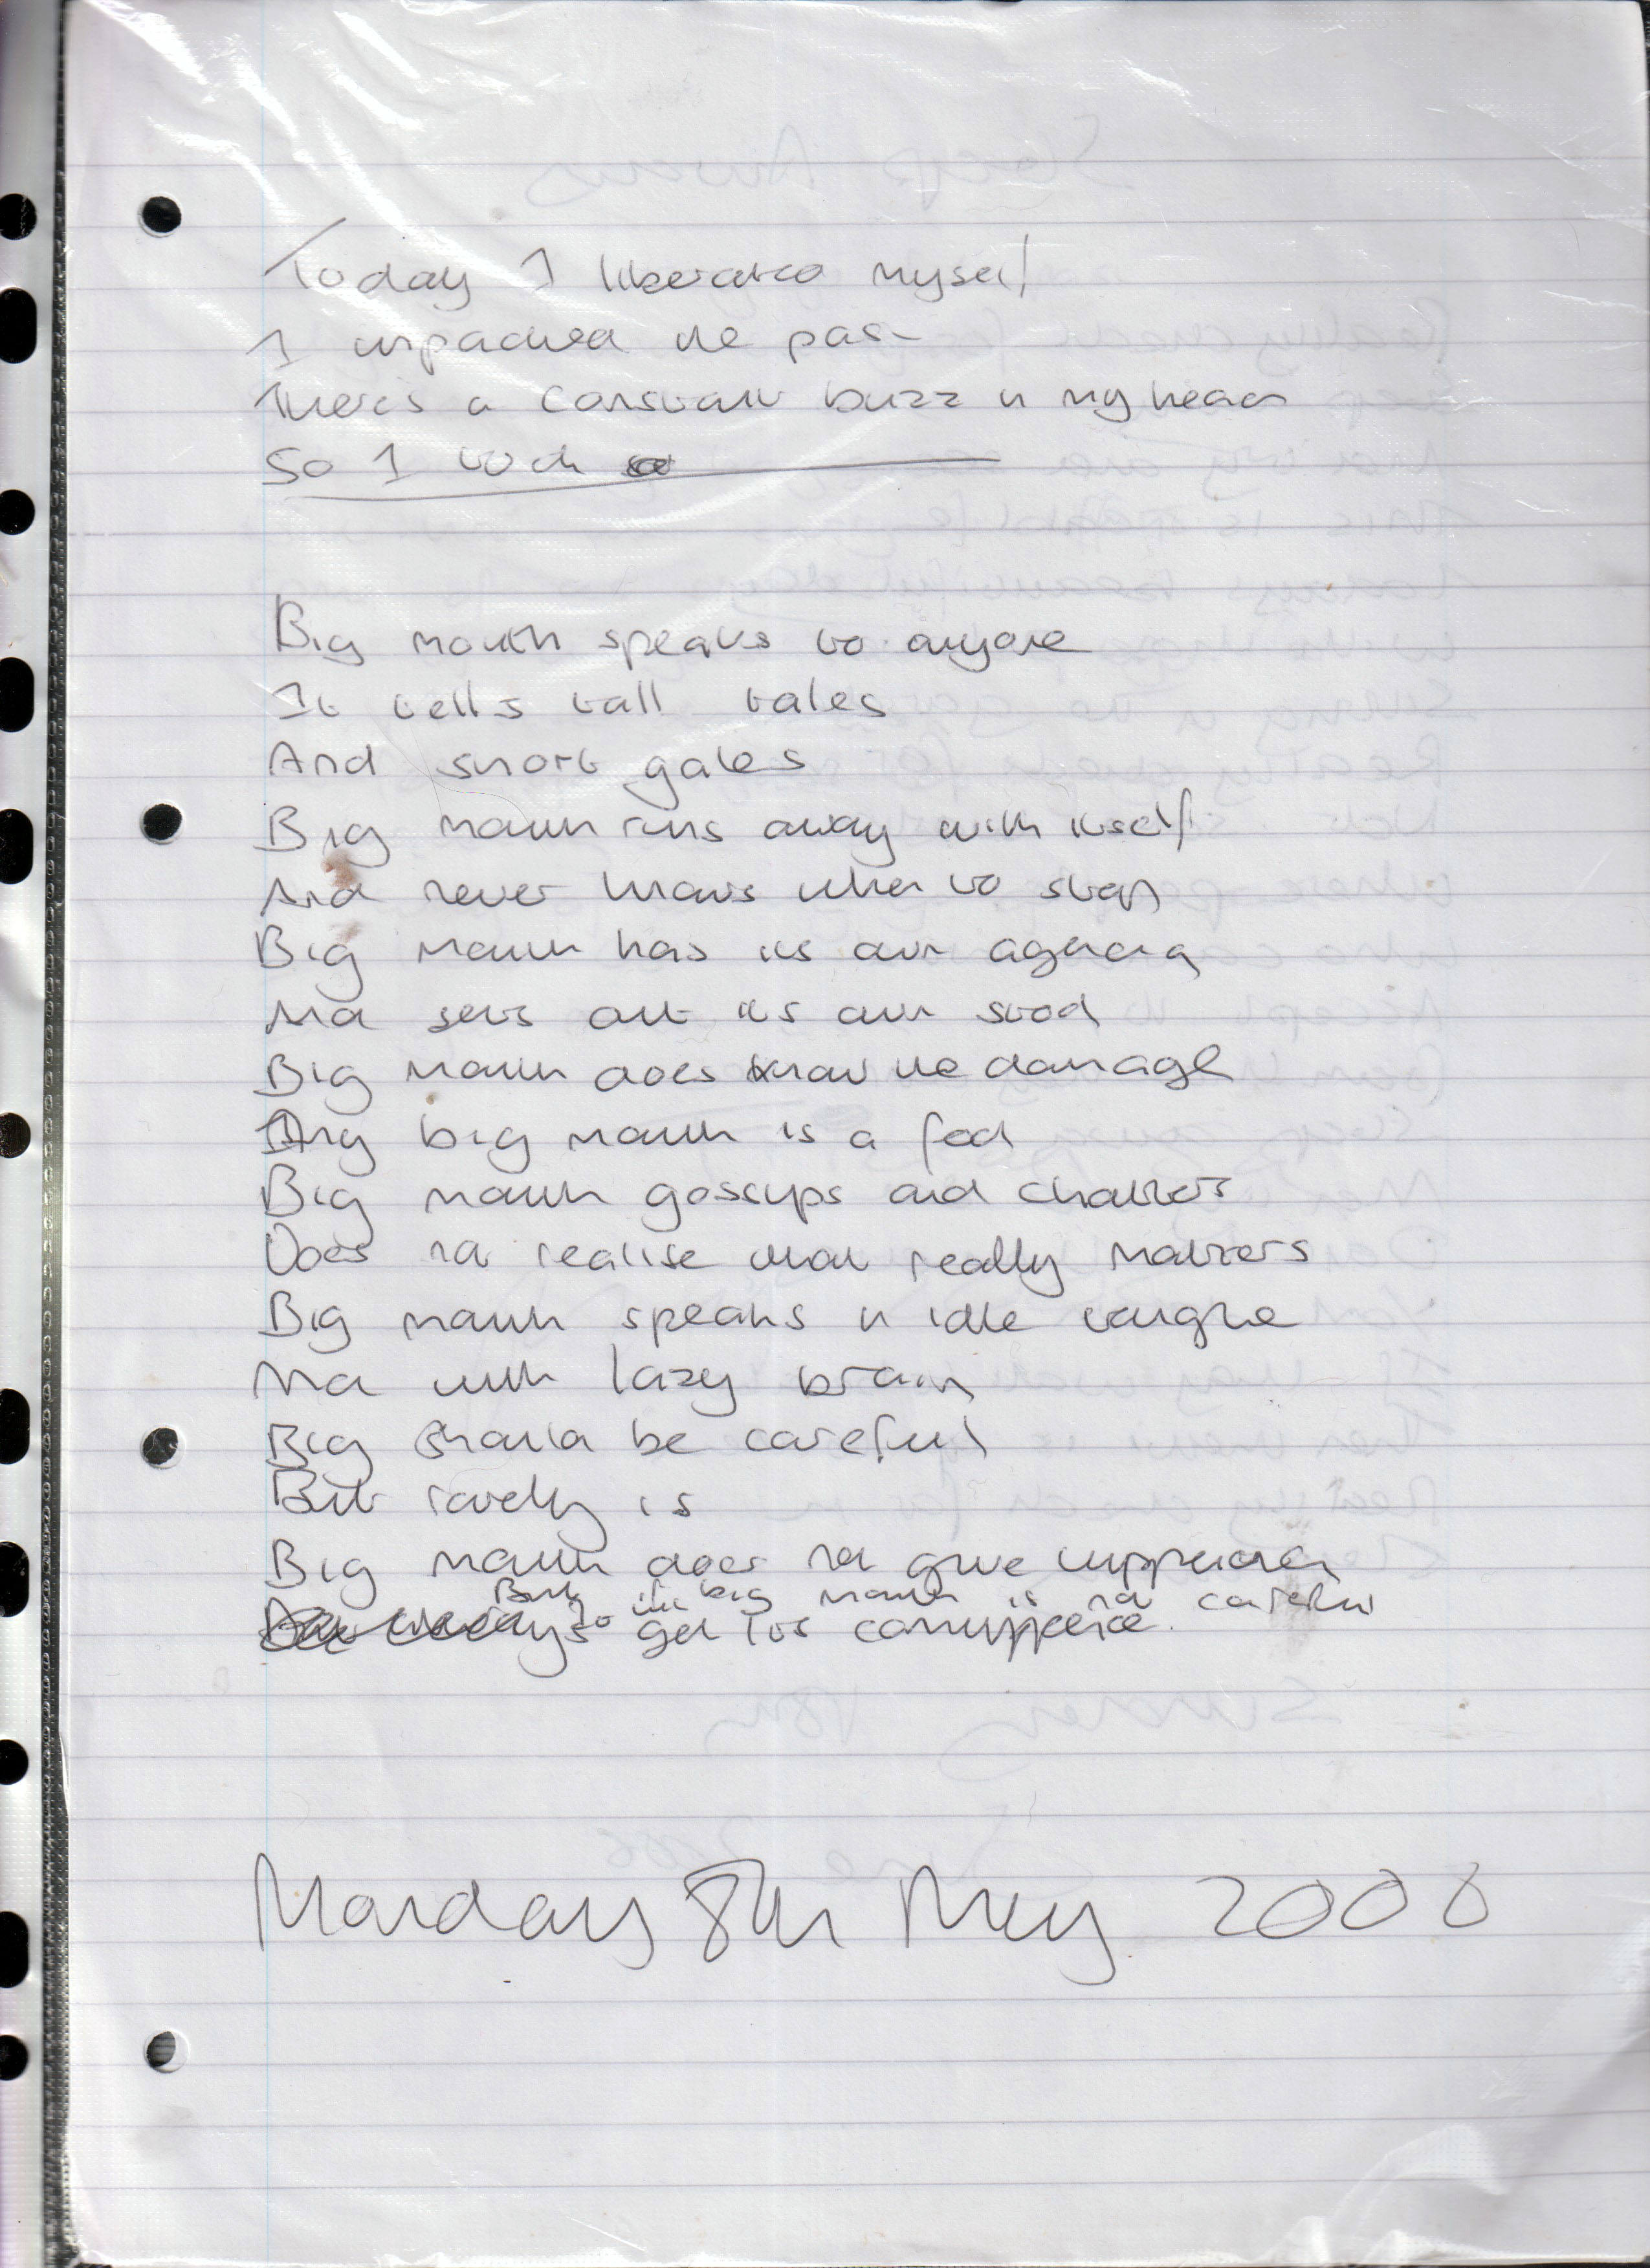 Today I liberated myself
I unpacked the past
There's a constant buzz in my head
So I
Big mouth speaks to anyone
It tells tall tales
And short gales
Big mouth runs away with itself
And never knows when to stop
Big mouth has its own agenda
And sets out its own stool
Big mouth does know the damage
Any big mouth is a fool
Big mouth gossips and chatters
Does not realise what really matters
Big mouth speaks in idle tongue
And with lazy brain
Big should be careful
But rarely is
Big mouth does not give
But if big mouth is not careful
get its comeuppence.
Monday 8th May 2006